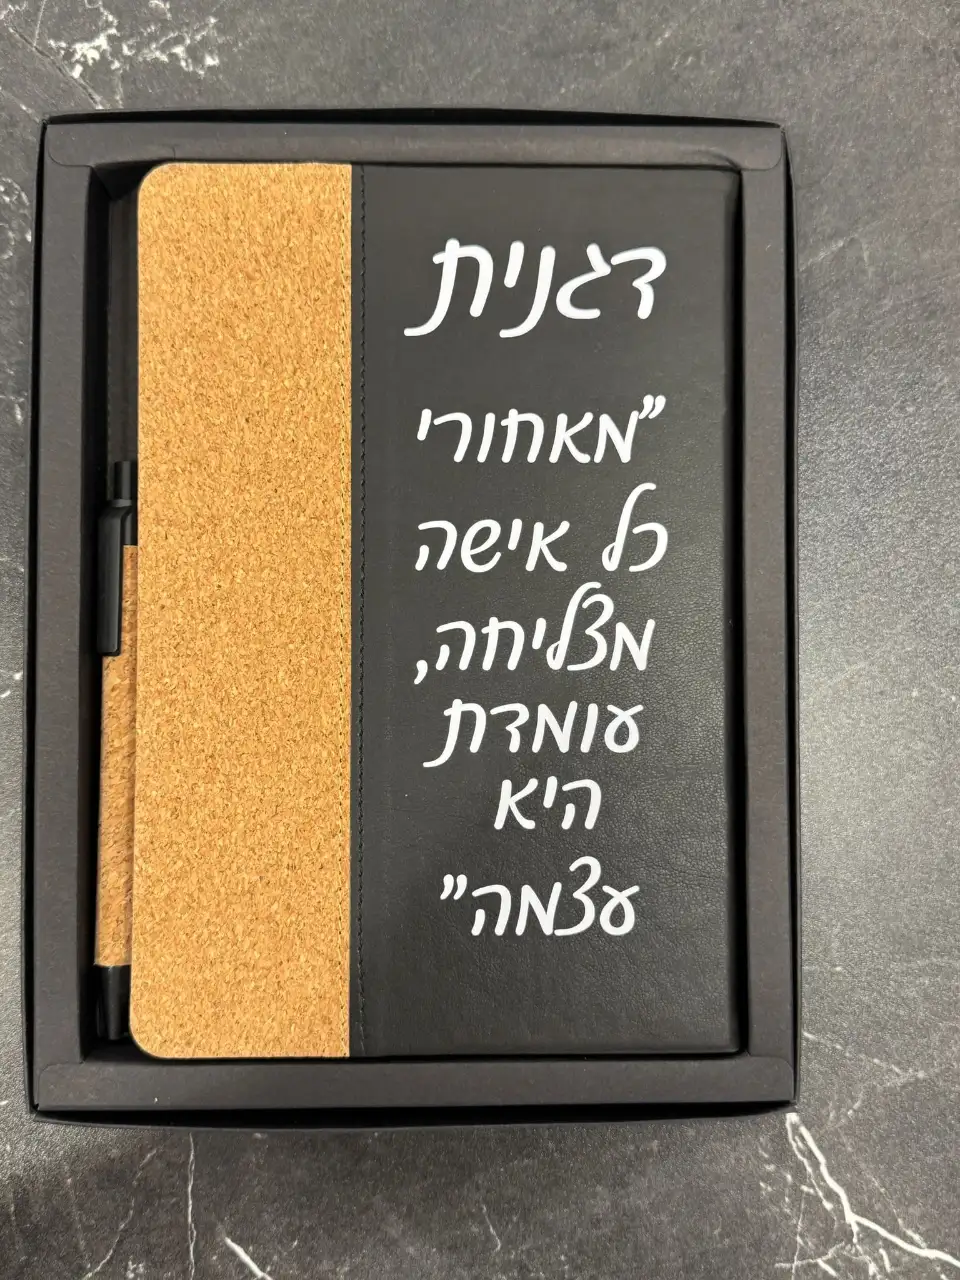 דגנית
"מאחורי
כל אישה
מצליחה,
עומדת
היא
עצמה"